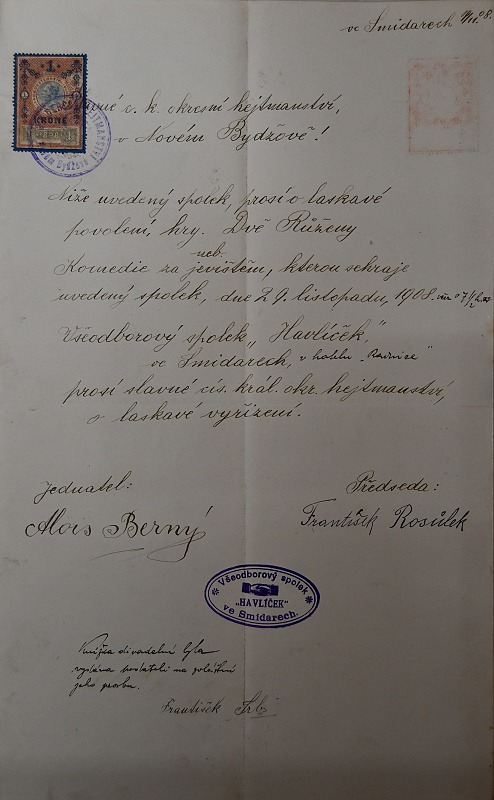 ve Smidarech 9/11.08.
1
KRONE
c. k. okresní hejtmanství,
v Novém Bydžově!
Níže uvedený spolek, prosí o laskavé
povolení, hry. Dvě Růženy
neb.
Komedie za jevištěm, kterou sehraje
uvedený spolek, dne 29. listopadu, 1908. o 7 1/2 h.
Všeodborový spolek „Havlíček",
ve Smidarech, v hotelu „Radnice"
prosí slavné cís. král. okr. hejtmanství,
o laskavé vyřízení.
Jednatel:
Předseda:
Alois Berný
František Rosůlek
Všeodborový spolek
„HAVLÍČEK"
ve Smidarech.
Knížka divadelní byla
vydána žadateli na
jeho prosbu.
František Srb